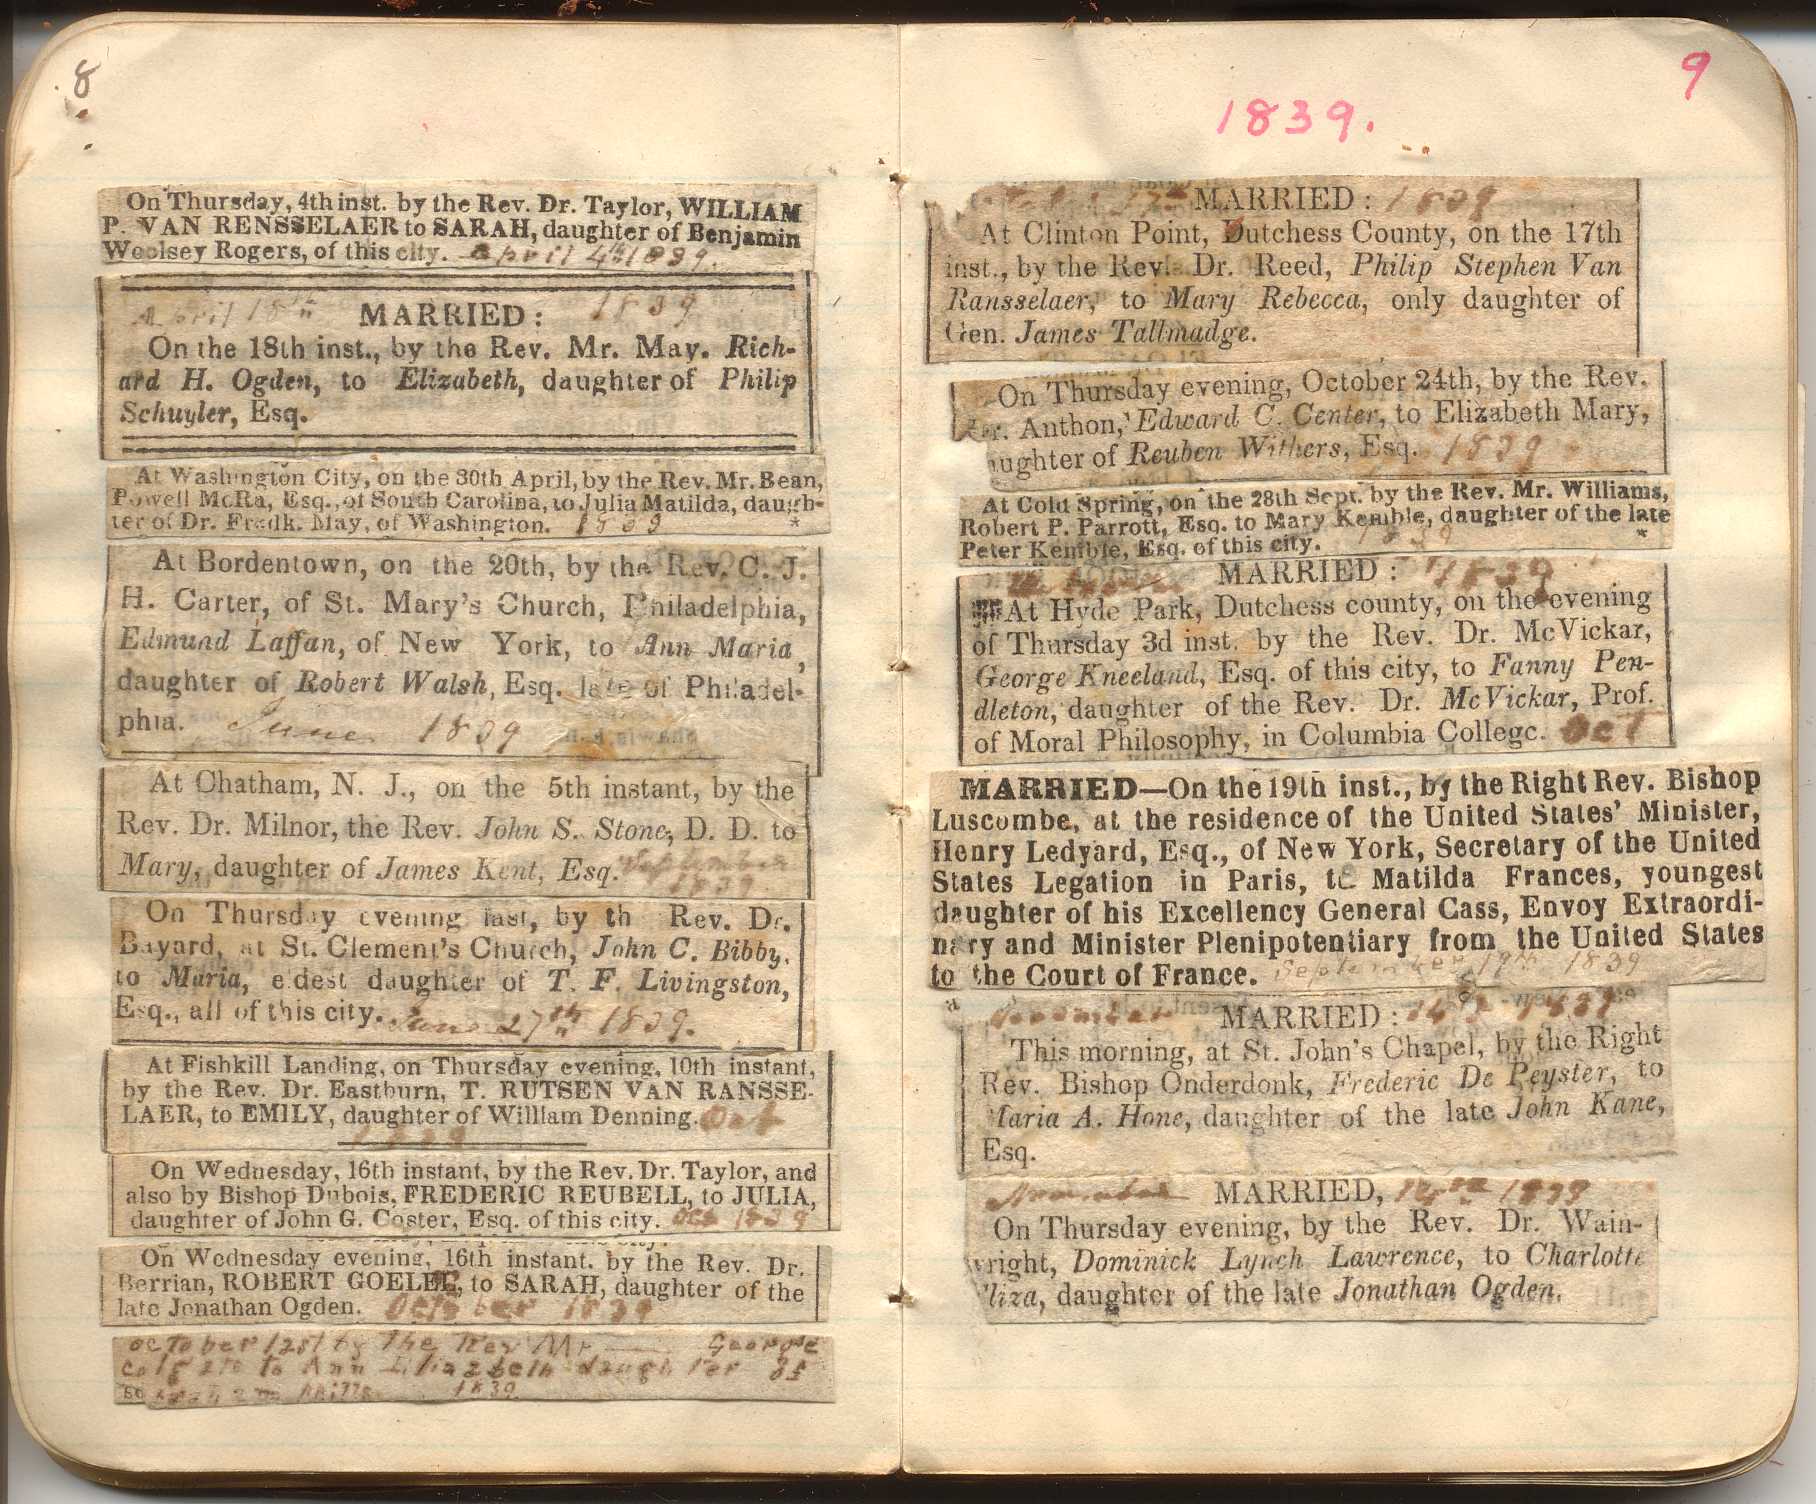 8
On Thursday, 4th inst. by the Rev. Dr. Taylor, WILLIAM
P. VAN RENSSELAER to SARAH, daughter of Benjamin
Woolsey Rogers, of this city. April 4th 1839.
April 18th 1839
MARRIED:
On the 18th inst., by the Rev. Mr. May. Rich-
ard H. Ogden, to Elizabeth, daughter of Philip
Schuyler, Esq.
At Washington City, on the 30th April, by the Rev. Mr. Bean,
Powell McRa, Esq., of South Carolina, to Julia Matilda, daugh-
ter of Dr. Fredk. May, of Washington. 1839 *
At Bordentown, on the 20th, by the Rev. C. J.
H. Carter, of St. Mary's Church, Philadelphia,
Edmund Laffan, of New York, to Ann Maria,
daughter of Robert Walsh, Esq. late of Philadel-
phia. June 1839
At Chatham, N. J., on the 5th instant, by the
Rev. Dr. Milnor, the Rev. John S. Stone, D. D. to
Mary, daughter of James Kent, Esq. September
1839.
On Thursday evening last, by th Rev. Dr.
Bayard, at St. Clement's Church, John C. Bibby,
to Maria, eldest daughter of T. F. Livingston,
Esq., all of this city. June 27th 1839.
At Fishkill Landing, on Thursday evening, 10th instant,
by the Rev. Dr. Eastburn, T. RUTSEN VAN RANSSE-
LAER, to EMILY, daughter of William Denning. Oct
1839
On Wednesday, 16th instant, by the Rev. Dr. Taylor, and
also by Bishop Dubois, FREDERIC REUBELL, to JULIA,
daughter of John G. Coster, Esq. of this city. Oct 1839
On Wednesday evening, 16th instant. by the Rev. Dr.
Berrian, ROBERT GOELET, to SARAH, daughter of the
late Jonathan Ogden. October 1839
October 12st by The Rev Mr George
to Ann Eliazbeth daughter of
1839
9
1839.
17th MARRIED: 1839
At Clinton Point, Dutchess County, on the 17th
inst., by the Rev. Dr. Reed, Philip Stephen Van
Ransselaer, to Mary Rebecca, only daughter of
Gen. James Tallmadge.
On Thursday evening, October 24th, by the Rev.
Dr. Anthon, Edward C. Center, to Elizabeth Mary,
aughter of Reuben Withers, Esq. 1839
At Cold Spring, on the 28th Sept. by the Rev. Mr. Williams,
Robert P. Parrott, Esq. to Mary Kemble, daughter of the late
Peter Kemble, Esq. of this city. 1839 *
MARRIED: 1839
At Hyde Park, Dutchess county, on the evening
of Thursday 3d inst. by the Rev. Dr. McVickar,
George Kneeland, Esq. of this city, to Fanny Pen-
dleton, daughter of the Rev. Dr. McVickar, Prof.
of Moral Philosophy, in Columbia College. Oct
MARRIED—On the 19th inst., by the Right Rev. Bishop
Luscombe, at the residence of the United States' Minister,
Henry Ledyard, Esq., of New York, Secretary of the United
States Legation in Paris, to Matilda Frances, youngest
daughter of his Excellency General Cass, Envoy Extraordi-
nary and Minister Plenipotentiary from the United States
to the Court of France. September 19th 1839
November MARRIED: 1839
This morning, at St. John's Chapel, by the Right
Rev. Bishop Onderdonk, Frederic De Peyster, to
Maria A. Hone, daughter of the late John Kane,
Esq.
November MARRIED, 1839
On Thursday evening, by the Rev. Dr. Wain-
wright, Dominick Lynch Lawrence, to Charlotte
Eliza, daughter of the late Jonathan Ogden.